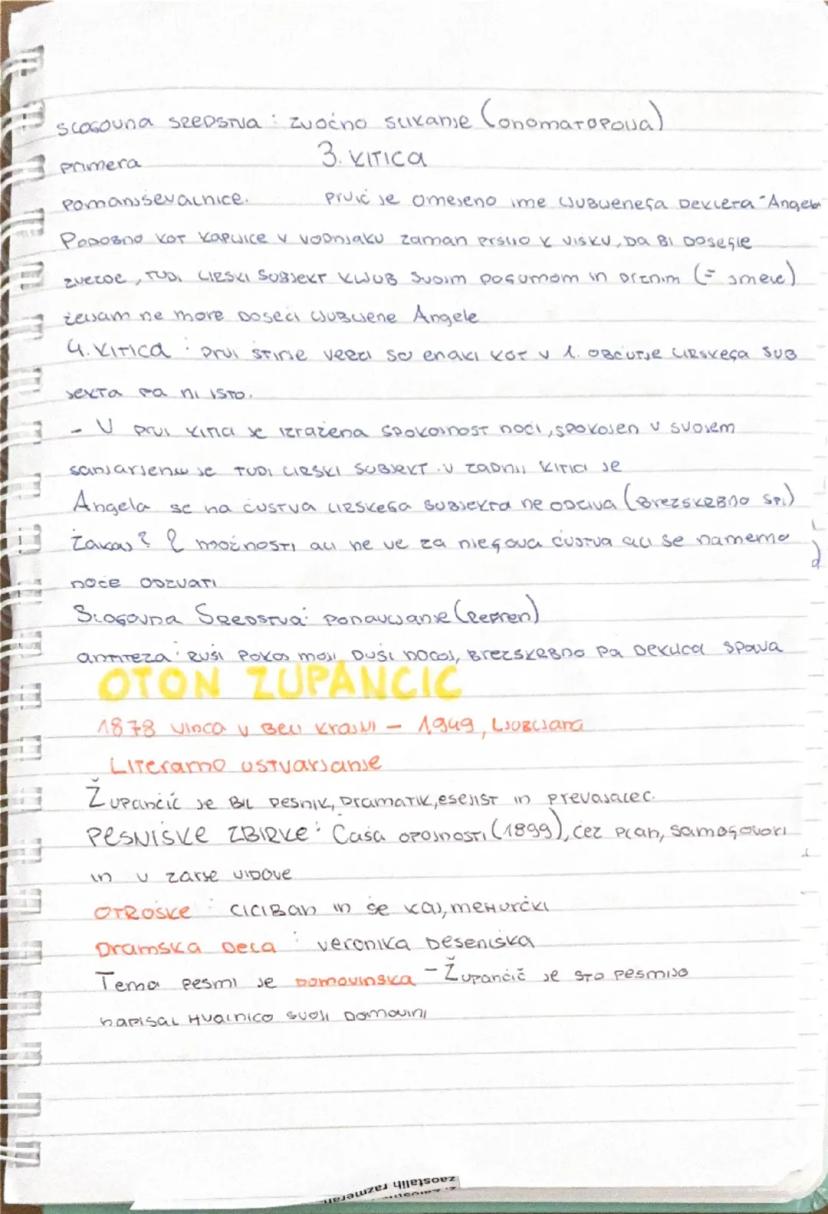 SLOGOVNA SREDSTVA: ZVOČNO SLIKANJE (ONOMATOPOIJA)
PRIMERA 3. KITICA
POMANJŠEVALNICE. PRVIČ JE OMENJENO IME LJUBLJENEGA DEKLETA "ANGELA
PODOBNO KOT KAPLJICE V VODNJAKU ZAMAN PRSIJO K VISKU, DA BI DOSEGLE
ZVEZDE, TUDI LIRSKI SUBJEKT KLJUB SVOIM POGUMOM IN DRZNIM (= SMELE)
ŽELJAM NE MORE DOSEČI LJUBLJENE ANGELE
4. KITICA: PRVI ŠTIRJE VERZI SO ENAKI KOT V 1. OBČUTJE LIRSKEGA SUB
JEKTA PA NI ISTO.
- V PRVI KITICI JE IZRAŽENA SPOKOJNOST NOČI, SPOKOJEN V SVOJEM
SANJARJENJU JE TUDI LIRSKI SUBJEKT. V ZADNJI KITICI JE
ANGELA SE NA ČUSTVA LIRSKEGA SUBJEKTA NE ODZIVA (BREZSKRBNO SPI)
ZAKAJ? 2 MOŽNOSTI ALI NE VE ZA NJEGOVA ČUSTVA ALI SE NAMERNO
NOČE ODZVATI
SLOGOVNA SREDSTVA: PONAVLJANJE (REFREN)
ANTITEZA: RUŠI POKOJ MOJI DUŠI NOCOJ, BREZSKRBNO PA DEKLICA SPAVA
OTON ZUPANCIC
1878 VINICA V BELI KRAJINI - 1949, LJUBLJANA
LITERARNO USTVARJANJE
ŽUPANČIČ JE BIL PESNIK, DRAMATIK, ESEJIST IN PREVAJALEC.
PESNIŠKE ZBIRKE: ČAŠA OPOJNOSTI (1899), ČEZ PLAN, SAMOGOVORI
IN V ZARJE VIDOVE
OTROŠKE: CICIBAN IN ŠE KAJ, MEHURČKI
DRAMSKA DELA: VERONIKA DESENIŠKA
TEMA PESMI JE DOMOVINSKA - ŽUPANČIČ JE S TO PESMIJO
NAPISAL HVALNICO SVOJI DOMOVINI
zaostalih razmerah